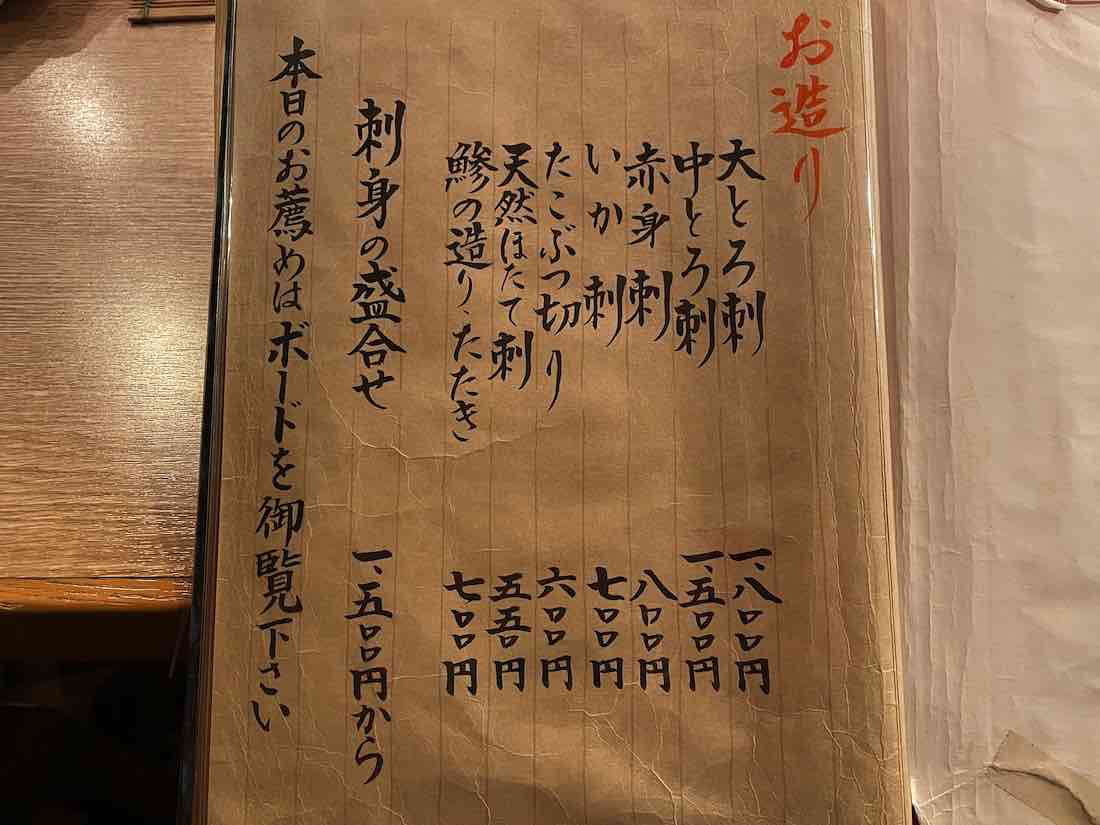 お造り
大とろ刺 一、八〇〇円
中とろ刺 一、五〇〇円
赤身刺 八〇〇円
いか刺 七〇〇円
たこぶつ切り 六〇〇円
天然ほたて刺 五五〇円
鯵の造り、たたき 七〇〇円
刺身の盛合せ 一、五〇〇円から
本日のお薦めはボードを御覧下さい